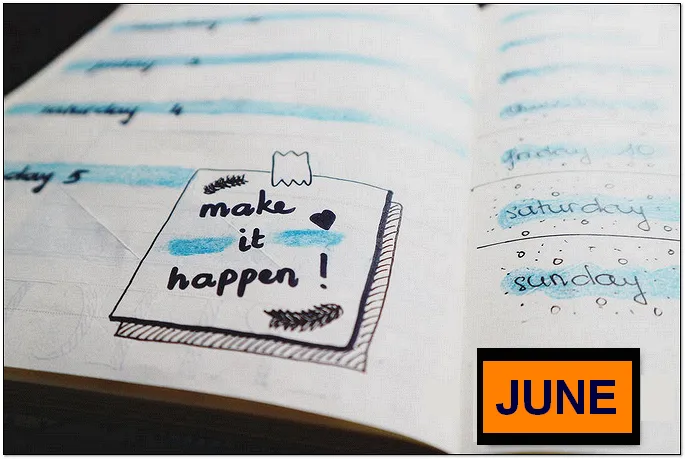 friday 3
saturday 4
day 5
make
it
happen !
friday 10
saturday
sunday
JUNE